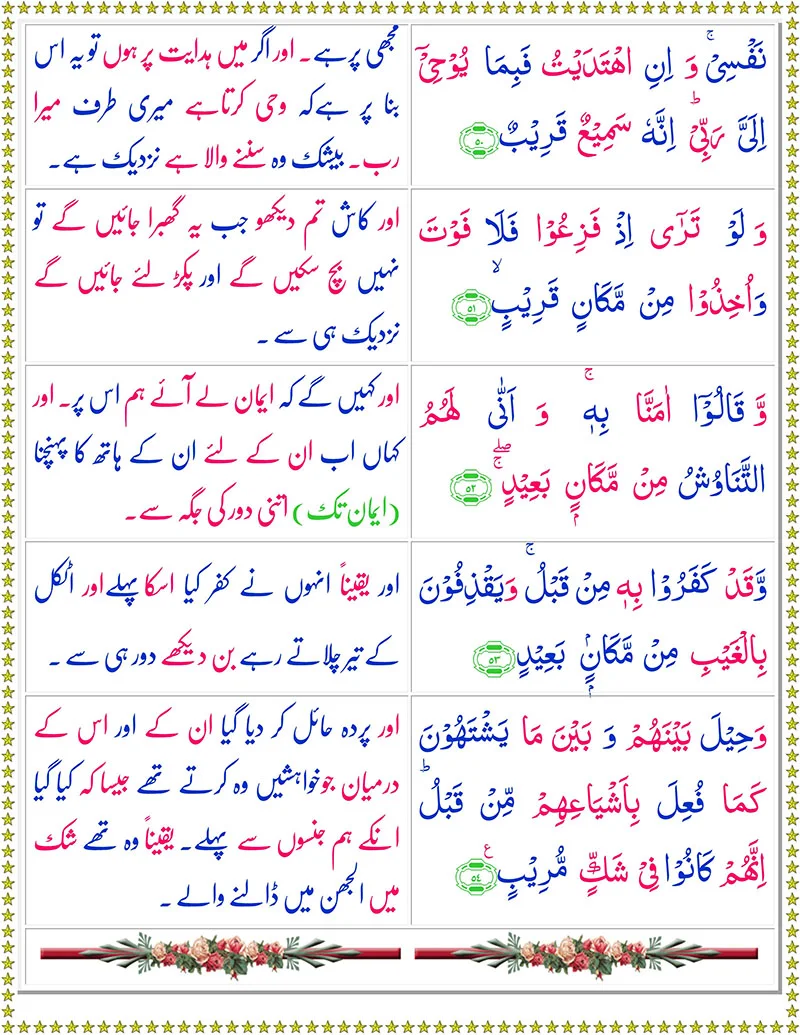 نَفۡسِیۡ ۚ وَ اِنِ اهۡتَدَیۡتُ فَبِمَا یُوۡحِیۡۤ
اِلَیَّ رَبِّیۡ ؕ اِنَّهٗ سَمِیۡعٌ قَرِیۡبٌ ﴿۵۰﴾
مجھی پر ہے۔ اور اگر میں ہدایت پر ہوں تو یہ اس
بنا پر ہےکہ وحی کرتاہے میری طرف میرا
رب۔ بیشک وہ سننے والا ہے نزدیک ہے۔
وَ لَوۡ تَرٰۤی اِذۡ فَزِعُوۡا فَلَا فَوۡتَ
وَاُخِذُوۡا مِنۡ مَّکَانٍ قَرِیۡبٍ ۙ ﴿۵۱﴾
اور کاش تم دیکھو جب یہ گھبرا جائیں گے تو
نہیں بچ سکیں گے اور پکڑ لئے جائیں گے
نزدیک ہی سے ۔
وَّ قَالُوۡۤا اٰمَنَّا بِهٖ ۚ وَ اَنّٰی لَهُمُ
التَّنَاوُشُ مِنۡ مَّکَانٍۭ بَعِیۡدٍ ۚۖ ﴿۵۲﴾
اور کہیں گے کہ ایمان لے آئے ہم اس پر۔ اور
کہاں اب ان کے لئے ان کے ہاتھ کا پہنچنا
(ایمان تک) اتنی دور کی جگہ سے۔
وَّقَدۡ کَفَرُوۡا بِهٖ مِنۡ قَبۡلُ ۚ وَیَقۡذِفُوۡنَ
بِالۡغَیۡبِ مِنۡ مَّکَانٍۭ بَعِیۡدٍ ﴿۵۳﴾
اور یقیناً انہوں نے کفر کیا اسکا پہلے اور اٹکل
کے تیر چلاتے رہے بن دیکھے دور ہی سے ۔
وَحِیۡلَ بَیۡنَهُمۡ وَ بَیۡنَ مَا یَشۡتَهُوۡنَ
کَمَا فُعِلَ بِاَشۡیَاعِهِمۡ مِّنۡ قَبۡلُ ؕ
اِنَّهُمۡ کَانُوۡا فِیۡ شَکٍّ مُّرِیۡبٍ ﴿۵۴﴾ ع
اور پردہ حائل کر دیا گیا ان کے اور اس کے
درمیان جوخواہشیں وہ کرتے تھے جیسا کہ کیا گیا
انکے ہم جنسوں سے پہلے۔ یقیناً وہ تھے شک
میں الجھن میں ڈالنے والے ۔